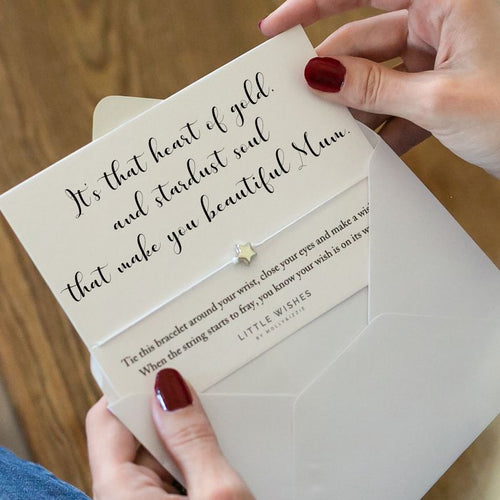 It's that heart of gold.
and stardust soul
that make you beautiful Mum.
Tie this bracelet around your wrist, close your eyes and make a wis
When the string starts to fray, you know your wish is on its w
LITTLE WISHES
BY MOLLY&IZZIE